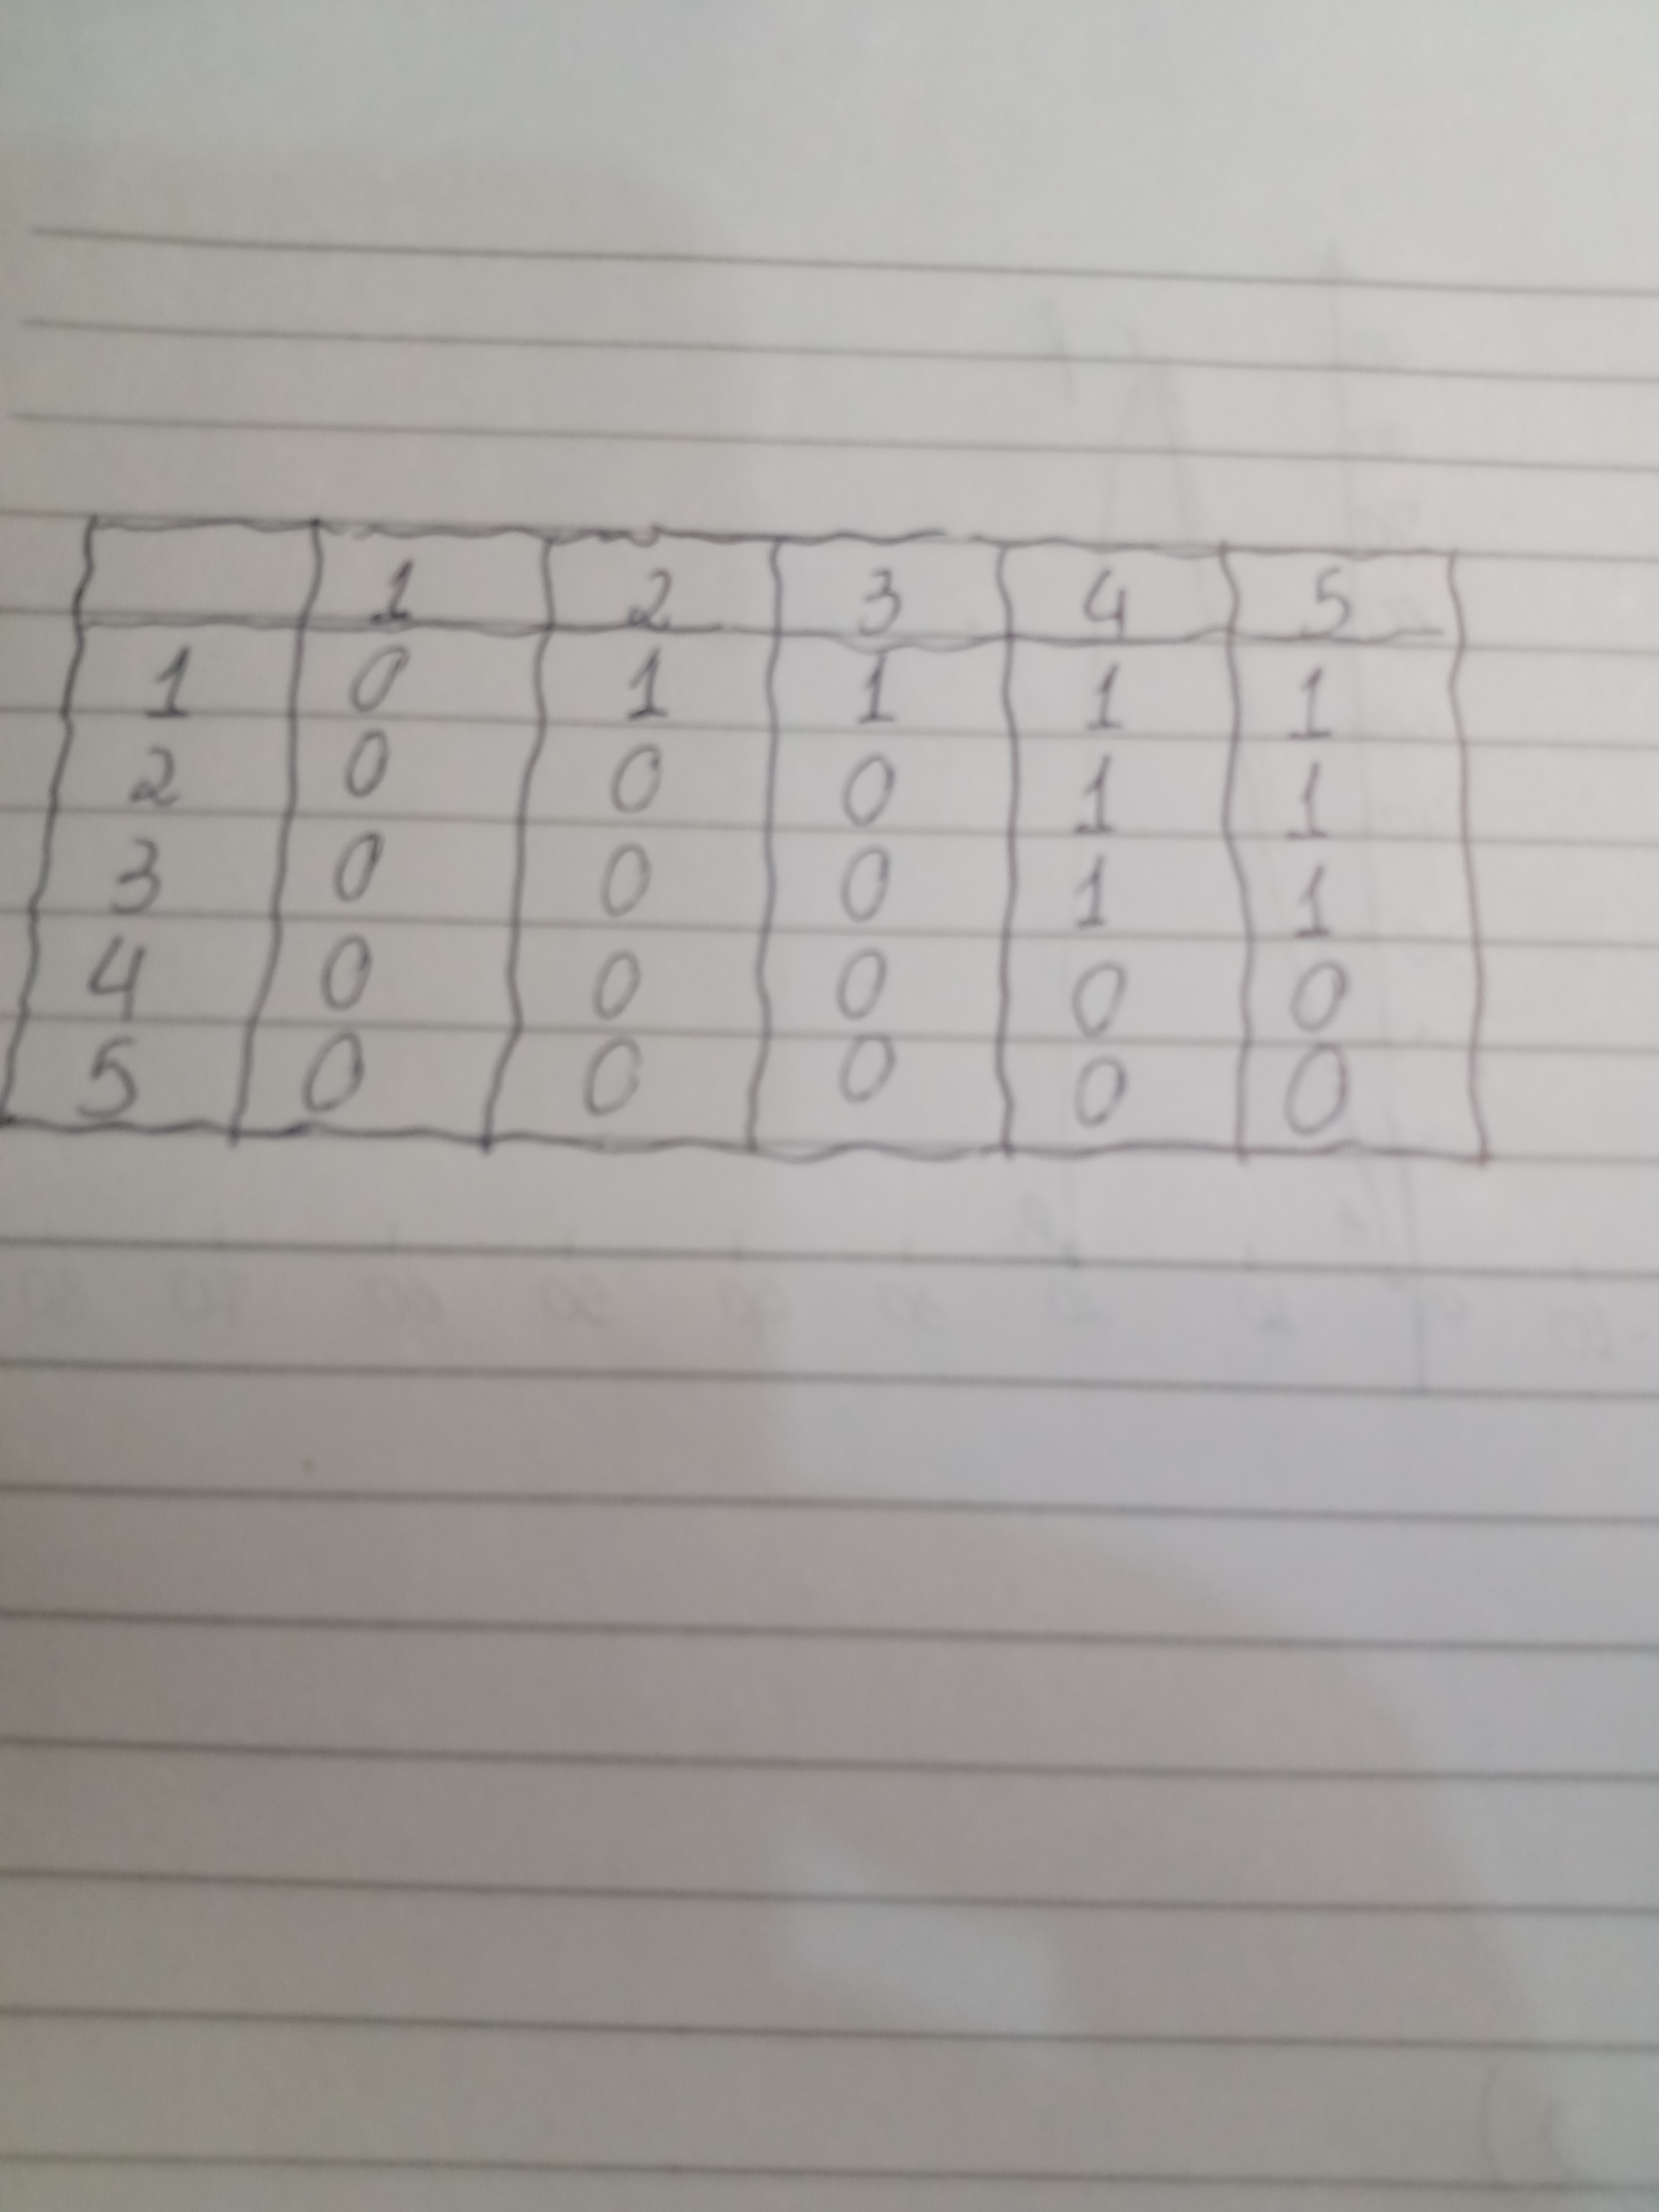 1 2 3 4 5
1 0 1 1 1 1
2 0 0 0 1 1
3 0 0 0 1 1
4 0 0 0 0 0
5 0 0 0 0 0